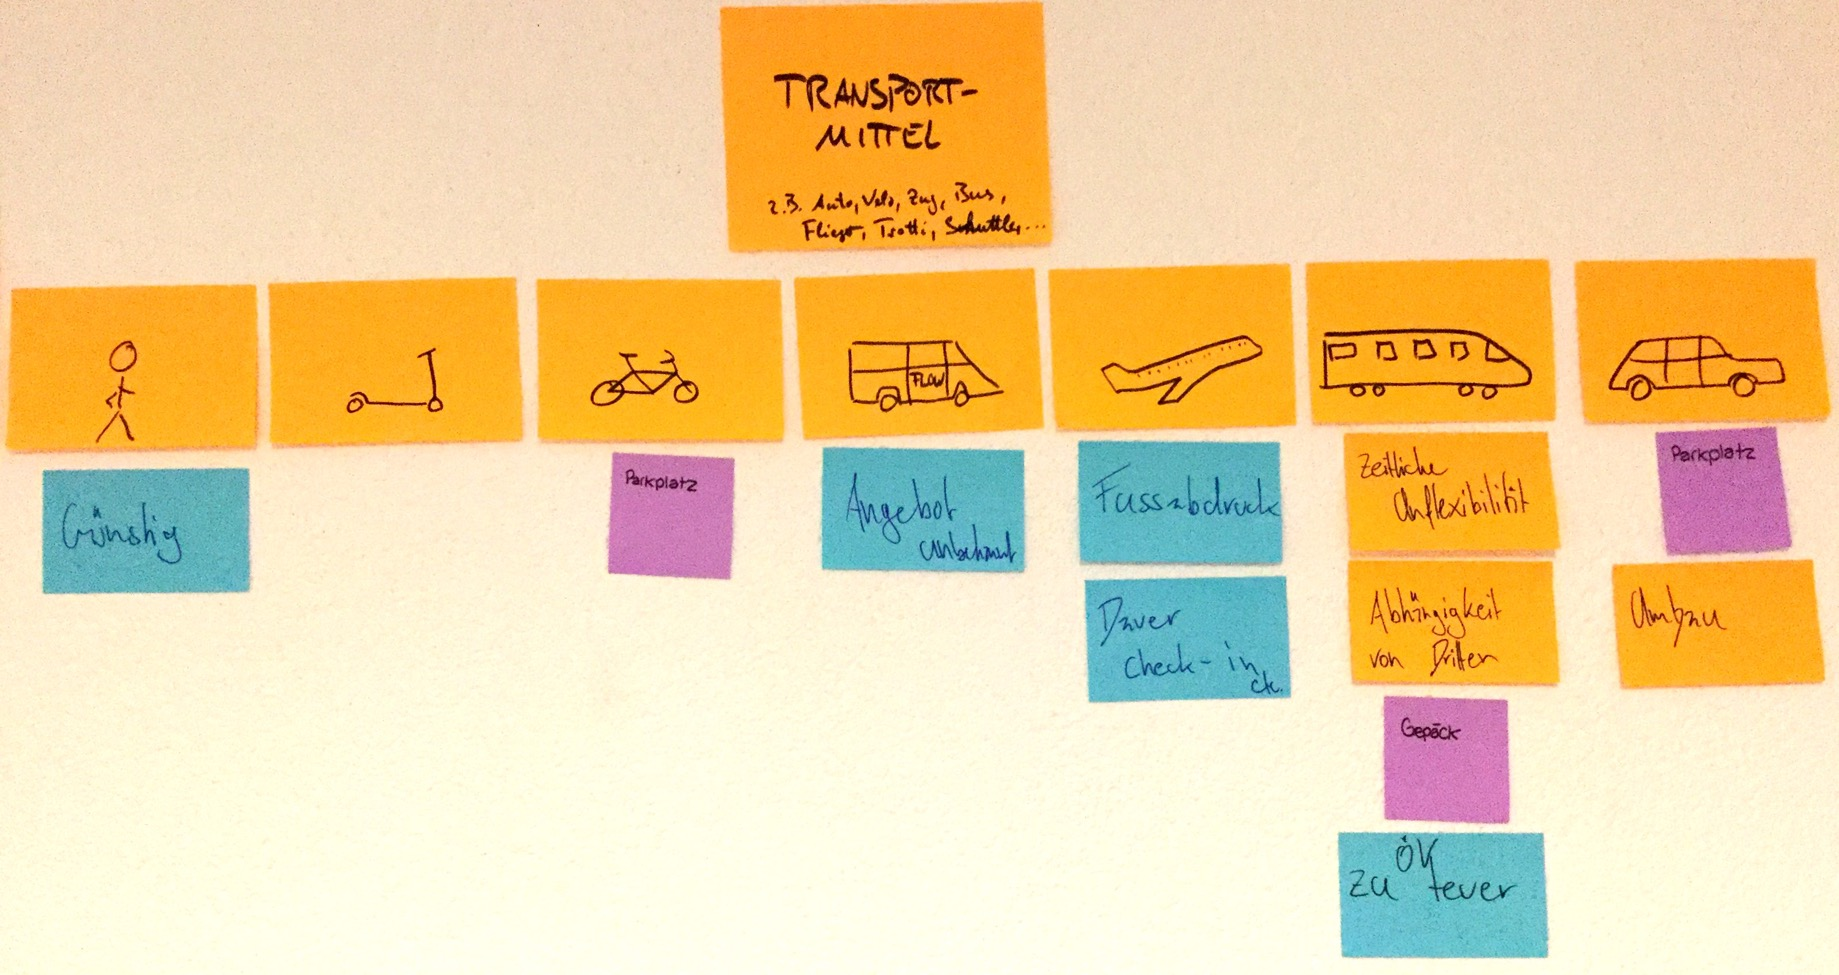 TRANSPORT-
MITTEL
z.B. Auto, Velo, Zug, Bus,
Flieger, Trotti, Schuttle, ...
FLOW
Günstig
Parkplatz
Angebot
unbekannt
Fussabdruck
Dauer
check-in
etc.
Zeitliche
Unflexibilität
Abhängigkeit
von Dritten
Gepäck
ÖV
zu teuer
Parkplatz
Umbau